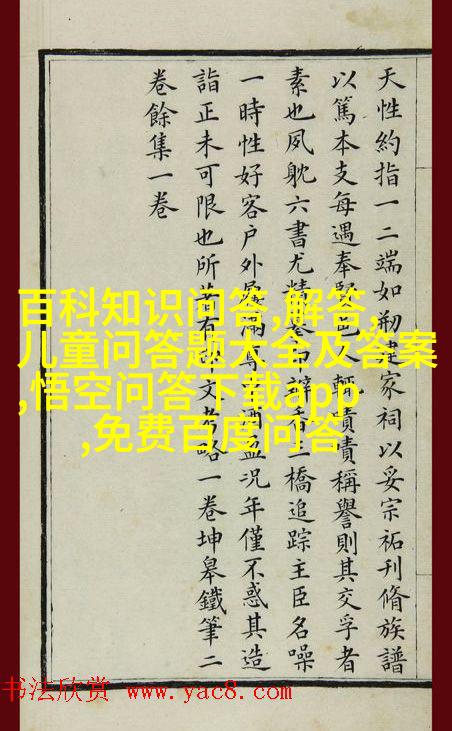 天性約指一二端如剏建家祠以妥宗祏刊脩族譜
以篤本支每遇奉賢邑人輒嘖嘖稱譽則其交孚者
素也夙躭六書尤精 香三橋追踪主臣名噪
一時性好客户外 滿 中酒 况年僅不惑其造
詣正未可限也所著有 文考略一卷坤皋鐵筆二
卷餘集一卷
百科知识问答,解答,
儿童问答题大全及答案
,悟空问答下载app
,免费百度问答
书法欣赏 www.yac8.com